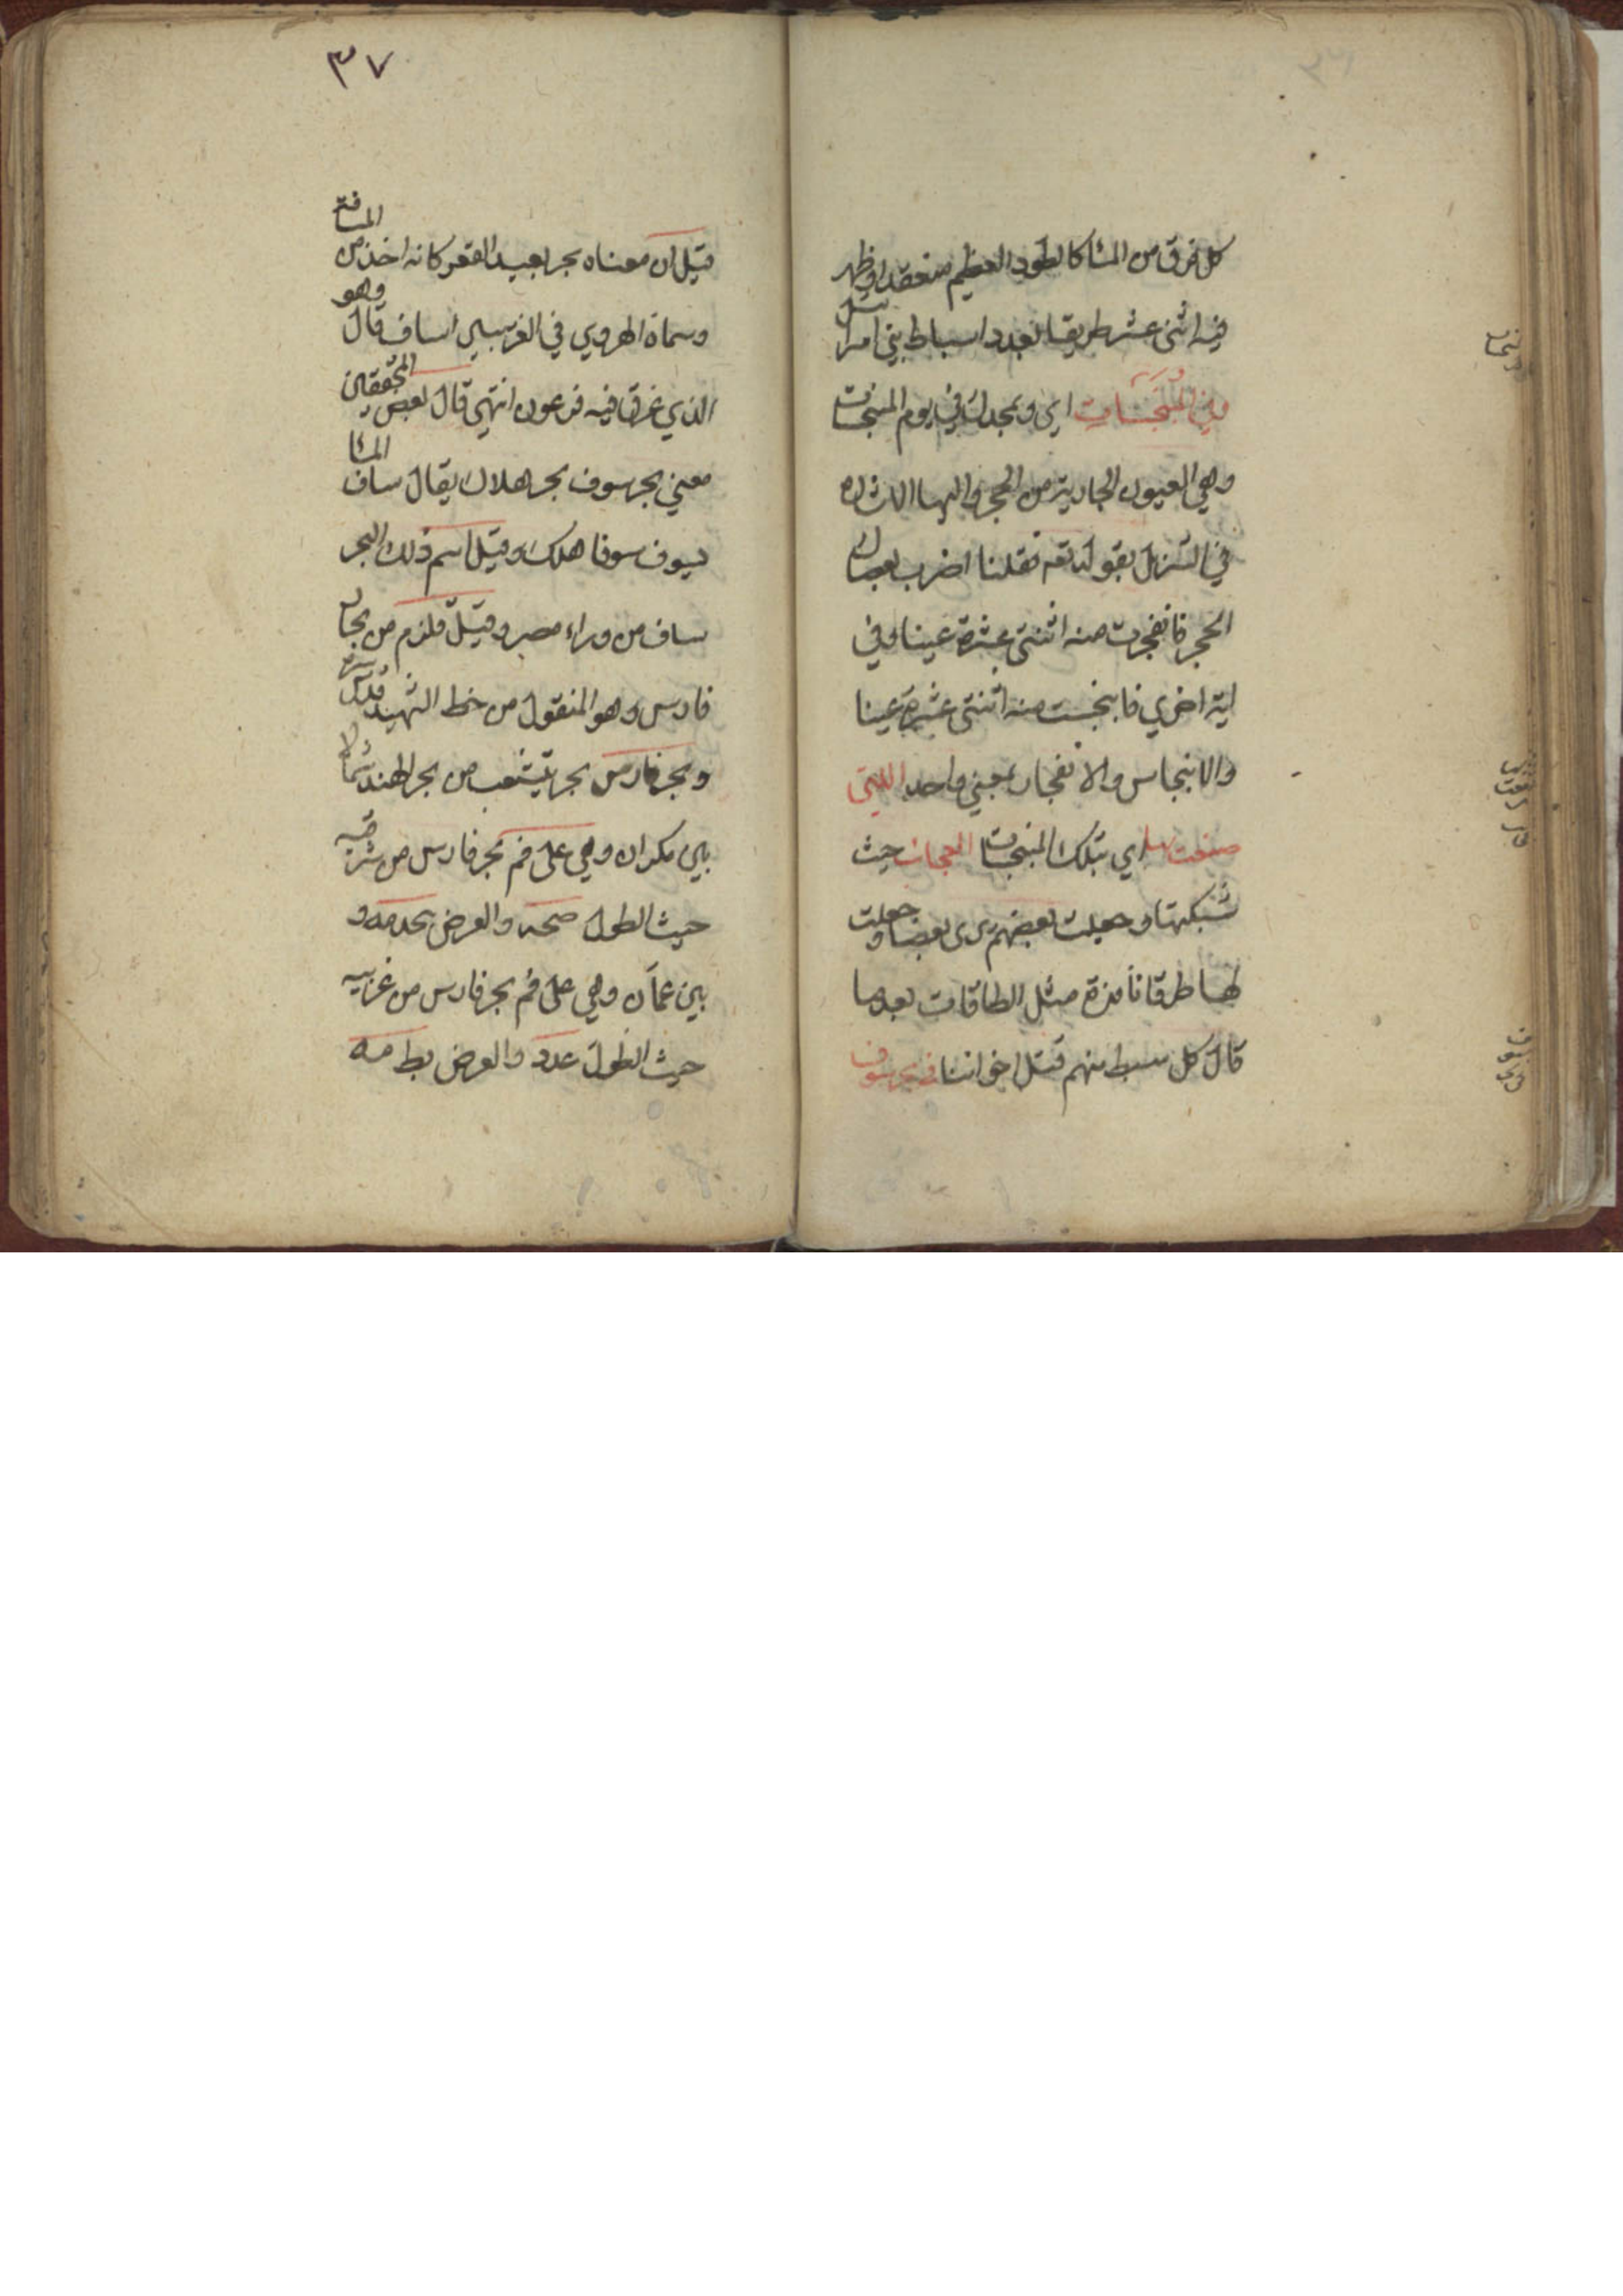 كل فرق من الماء كالطود العظيم منعقدا وظهر
فيه اثنى عشر طريقا بعدد اسباط بني اسرائيل
وفي المنبجسات اي وبمجدك في يوم المنبجسات
وهي العيون الجارية من الحجر واليها الاشارة
في التنزيل بقوله تعه فقلنا اضرب بعصاك
الحجر فانفجرت منه اثنتى عشرة عينا وفي
اية اخرى فانبجست منه اثنتى عشرة عينا
والانبجاس والانفجار بمعنى واحد التي
صنعت بها اي بتلك المنبجسات العجائب حيث
شبكتها وجعلت بعضهم يرى بعضا وجعلت
لها طرقا نافذة مثل الطاقات بعدما
قال كل سبط منهم قتل اخواننا في بحر سوف
٣٧
قيل ان معناه بحر بعيد القعر كانه اخذ من المسافة
وسماه الهروي في الغريبين اساف قال وهو
الذي غرق فيه فرعون انتهى قال بعض المحققين
معنى بحر سوف بحر هلاك يقال ساف الماء
يسوف سوفا هلك وقيل اسم ذلك البحر
ساف من وراء مصر وقيل قلزم من بحار
فارس وهو المنقول من خط الشهيد قدس سره
وبحر فارس بحر يتشعب من بحر الهند شمالا
بين مكران وهي على فم بحر فارس من شرقيه
حيث الطول صحه والعرض
بين عمان وهي على فم بحر فارس من غربيه
حيث الطول عدد والعرض يط مه